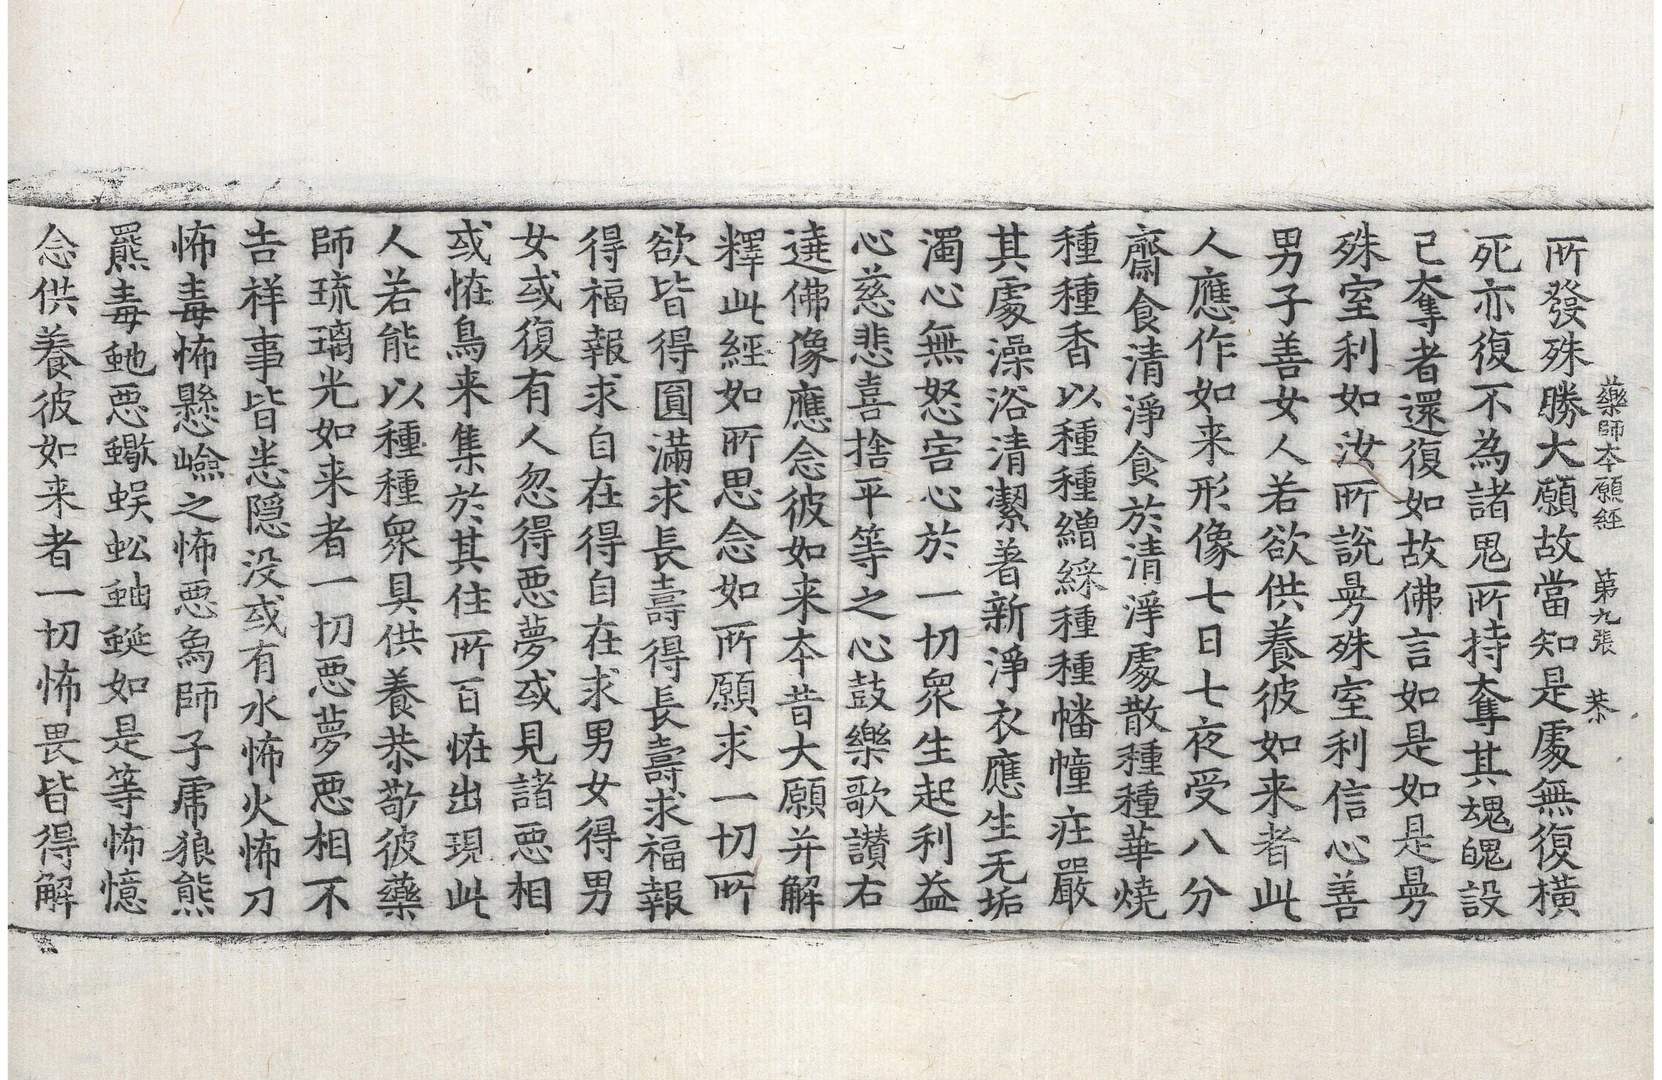 藥師本願經 第九張 恭
所發殊勝大願故當知是處無復橫
死亦復不為諸鬼所持奪其魂魄設
已奪者還復如故佛言如是如是曼
殊室利如汝所說曼殊室利信心善
男子善女人若欲供養彼如来者此
人應作如来形像七日七夜受八分
齋食清淨食於清淨處散種種華燒
種種香以種種繒綵種種幡幢庄嚴
其處澡浴清潔著新淨衣應生无垢
濁心無怒害心於一切衆生起利益
心慈悲喜捨平等之心鼓樂歌讃右
遶佛像應念彼如来本昔大願并解
釋此經如所思念如所願求一切所
欲皆得圓滿求長壽得長壽求福報
得福報求自在得自在求男女得男
女或復有人忽得惡夢或見諸惡相
或恠鳥来集於其住所百恠出現此
人若能以種種衆具供養恭敬彼藥
師琉璃光如来者一切惡夢惡相不
吉祥事皆悉隠没或有水怖火怖刀
怖毒怖懸嶮之怖惡象師子虎狼熊
羆毒虵惡蠍蜈蚣蚰蜒如是等怖憶
念供養彼如来者一切怖畏皆得解